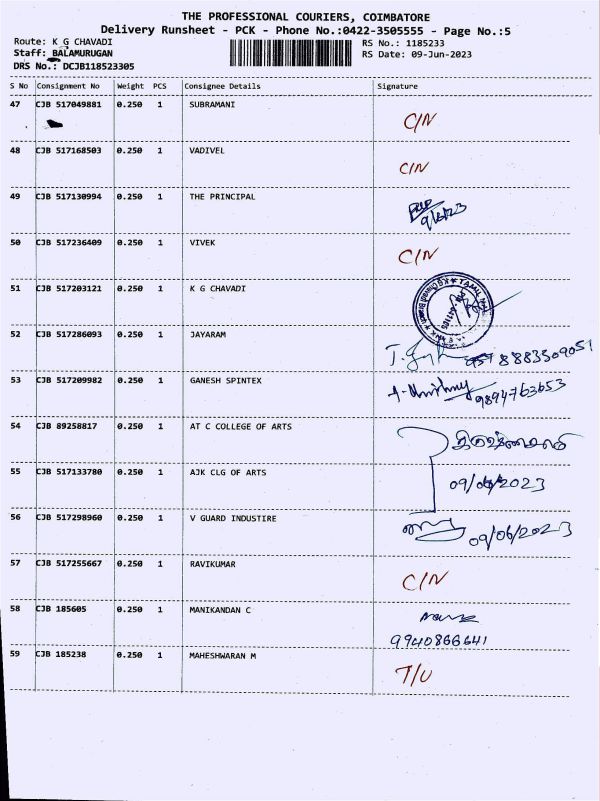 THE PROFESSIONAL COURIERS, COIMBATORE
Delivery Runsheet - PCK - Phone No.:0422-3505555 - Page No.:5
Route: K G CHAVADI RS No.: 1185233
Staff: BALAMURUGAN RS Date: 09-Jun-2023
DRS No.: DCJB118523305
S No Consignment No Weight PCS Consignee Details Signature
47 CJB 517049881 0.250 1 SUBRAMANI C/N
48 CJB 517168503 0.250 1 VADIVEL C/N
49 CJB 517130994 0.250 1 THE PRINCIPAL
50 CJB 517236409 0.250 1 VIVEK C/N
51 CJB 517203121 0.250 1 K G CHAVADI
52 CJB 517286093 0.250 1 JAYARAM 8883509051
53 CJB 517209982 0.250 1 GANESH SPINTEX 9894763653
54 CJB 89258817 0.250 1 AT C COLLEGE OF ARTS
55 CJB 517133780 0.250 1 AJK CLG OF ARTS 09/06/2023
56 CJB 517298960 0.250 1 V GUARD INDUSTIRE 09/06/2023
57 CJB 517255667 0.250 1 RAVIKUMAR C/N
58 CJB 185605 0.250 1 MANIKANDAN C
9940866641
59 CJB 185238 0.250 1 MAHESHWARAN M T/U